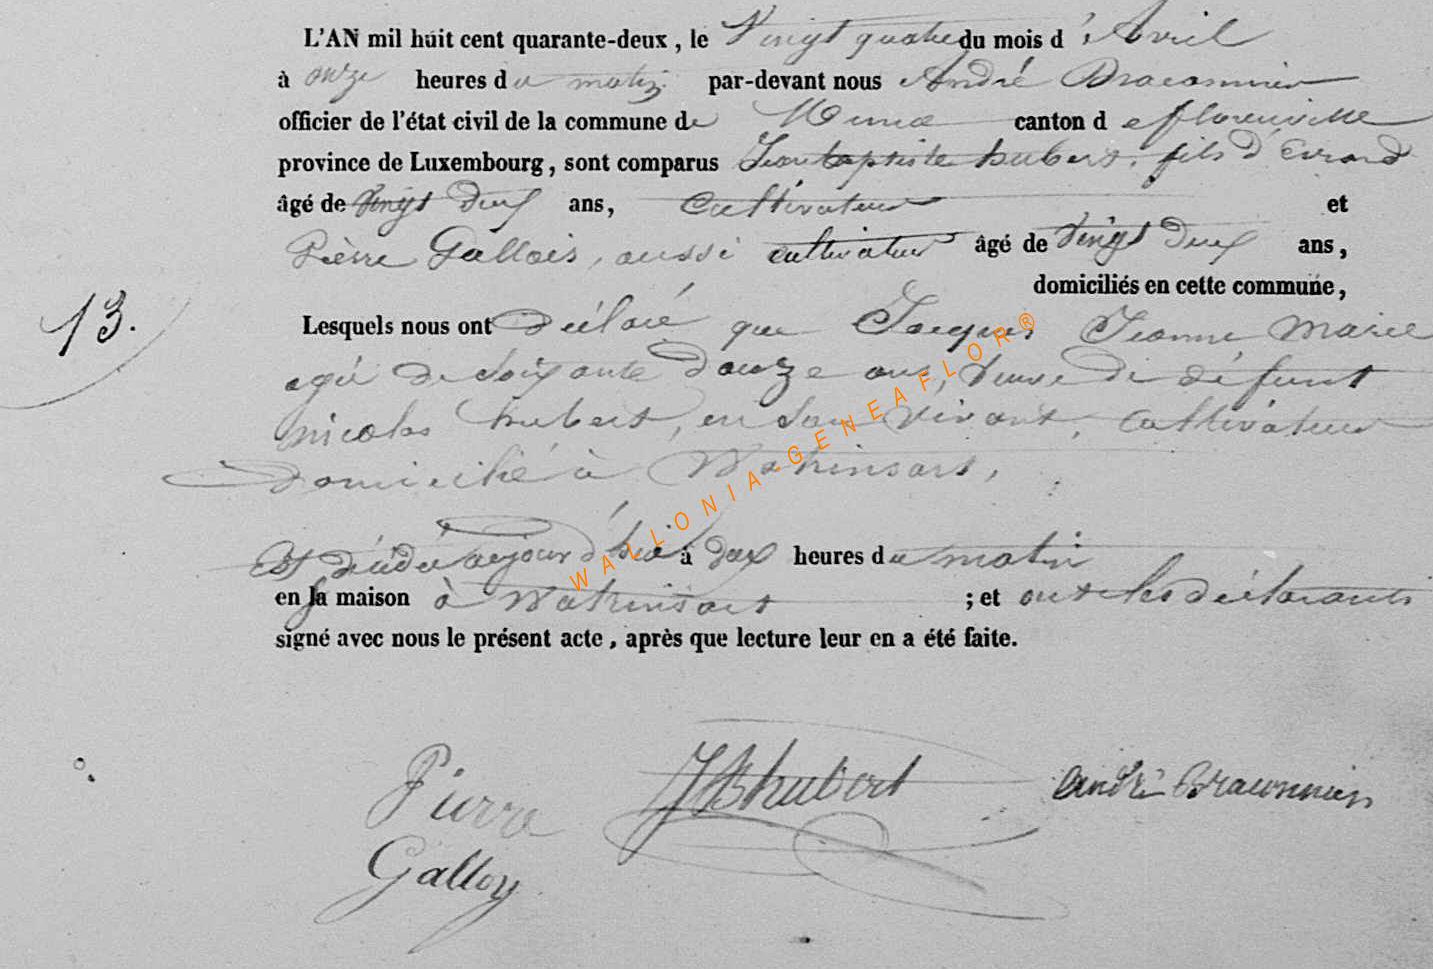 L'AN mil huit cent quarante-deux, le Vingt quatre du mois d'Avril
à onze heures du matin par-devant nous André Braconnier
officier de l'état civil de la commune de Muno canton de florenville
province de Luxembourg, sont comparus Jean baptiste hubert, fils d'Evrard
âgé de Vingt deux ans, Cultivateur et
Pièrre Gallois, aussi cultivateur âgé de Vingt deux ans,
domiciliés en cette commune,
13.
Lesquels nous ont déclaré que Jacques Jeanne Marie
agée de Soixante douze ans, Veuve de défunt
nicolas hubert, en Son Vivant, Cultivateur
domicilié à Watrinsart,
Est décédée aujourd'hui à deux heures du matin
en sa maison à Watrinsart ; et ont les déclarants
signé avec nous le présent acte, après que lecture leur en a été faite.
Pierre JBhubert andré Braconnier
Galloy
WALLONIA-GENEAFLOR®